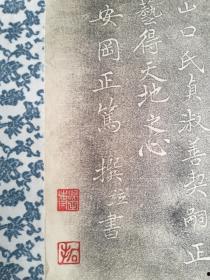 山口氏貞淑善契嗣正
藝得天地之心
安岡正篤撰並書